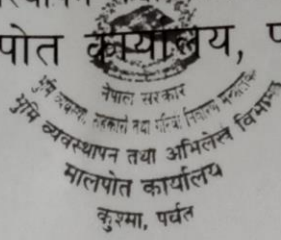 पोत कार्यालय,
नेपाल सरकार
भूमि व्यवस्था, सहकारी तथा गरिबी निवारण मन्त्रालय
भूमि व्यवस्थापन तथा अभिलेख विभाग
मालपोत कार्यालय
कुश्मा, पर्वत